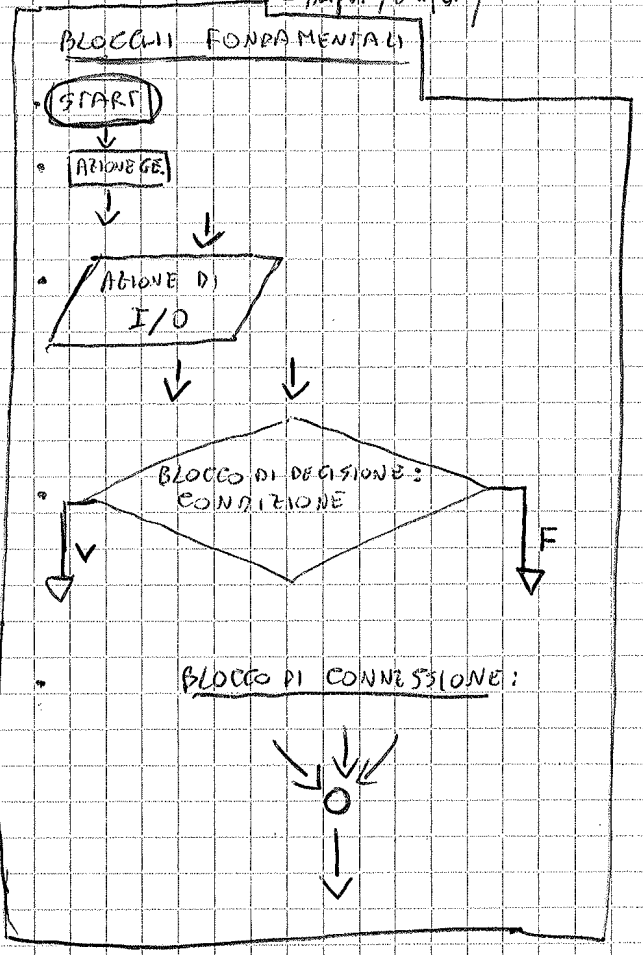 BLOCCHI FONDAMENTALI
START
AZIONE GE.
AZIONE DI
I/O
BLOCCO DI DECISIONE:
CONDIZIONE
V
F
BLOCCO DI CONNESSIONE: